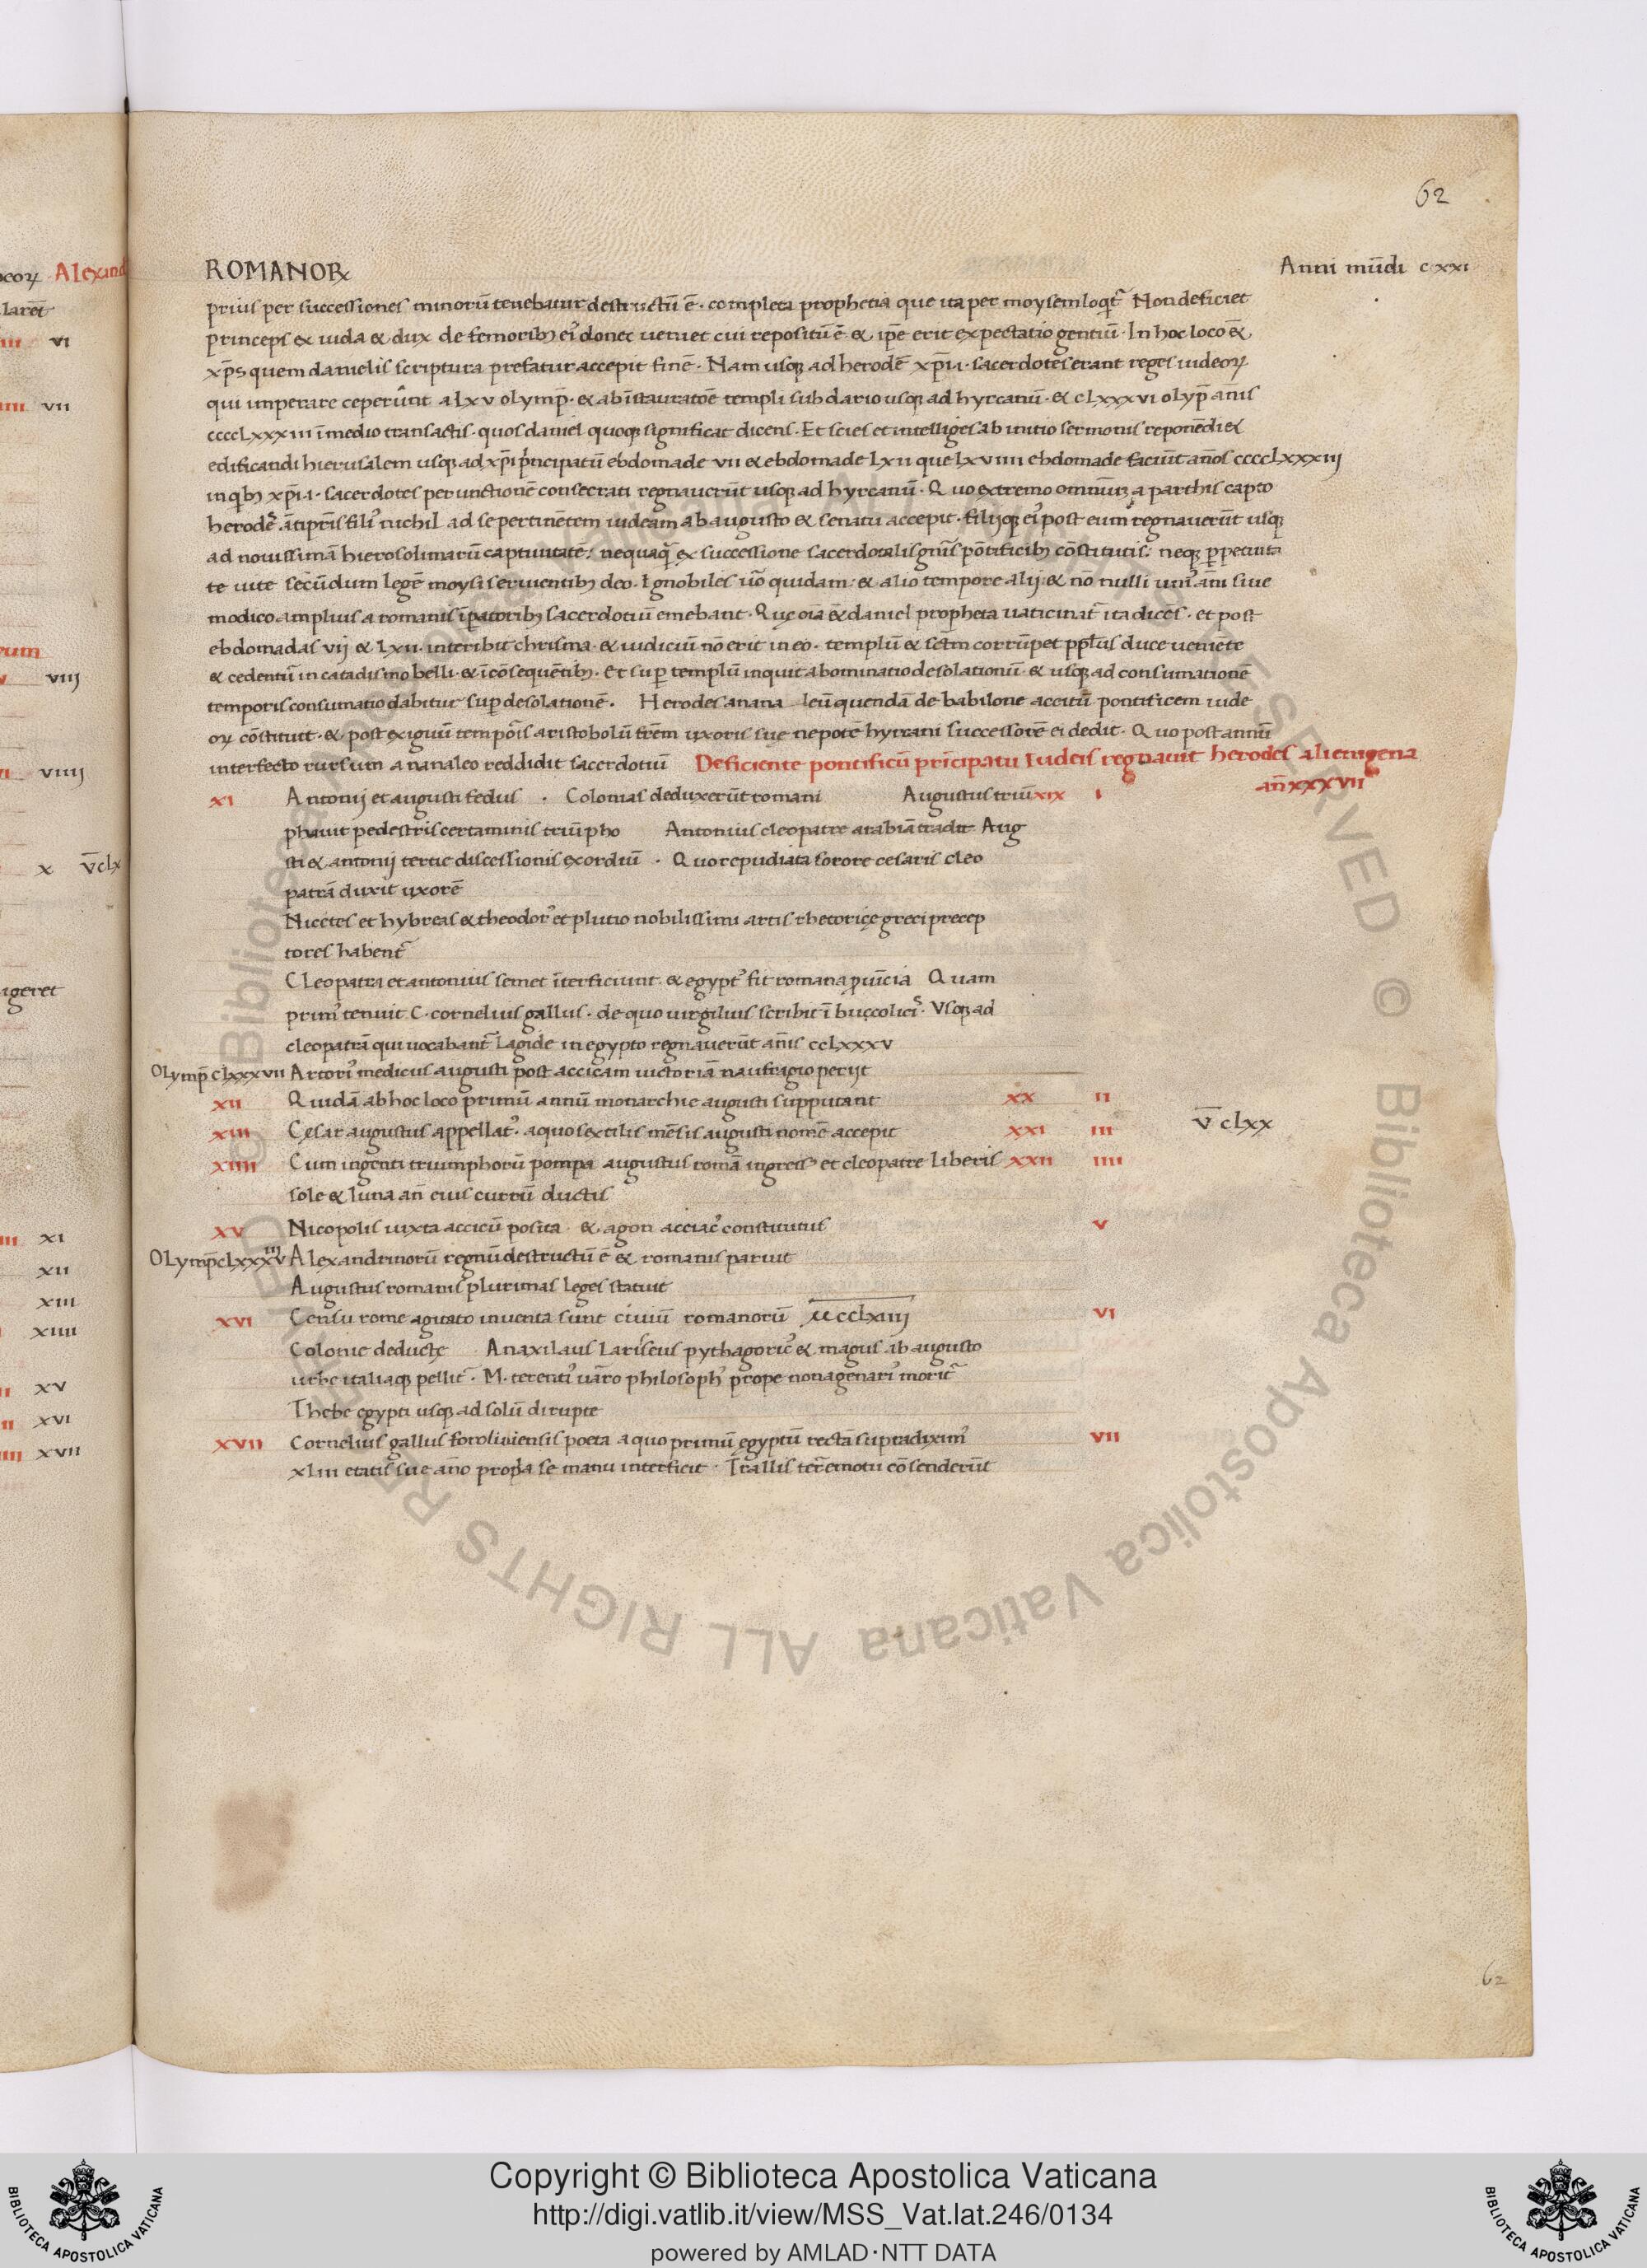 62
ROMANOꝜ Anni mūdi cxxi
prius per successiones minorū tenebatur destructū ē · completa prophetia que ita per moysem loqt᷑ Non deficiet
princeps ex iuda & dux de femorib; ei᾽ donec ueniet cui repositū ē & ip̄e erit expectatio gentiū · In hoc loco
xp̄s quem danielis scriptura prefatur accepit finē · Nam usq; ad herodē xp̄i · i · sacerdotes erant reges iudeoꝝ
qui imperare ceperūnt a lxv olymp̄ · & ab īstauratōe templi sub dario usq; ad hyrcanū · & clxxxvi olyp̄ annis
cccclxxxiii ī medio transactis · quos daniel quoq; significat dicens · Et scies et intelliges ab initio sermonis reponēdi &
edificandi hierusalem usq; ad xp̄i p̄ncipatū ebdomade vii & ebdomade lxii que lxviiii ebdomade faciūt an̄os cccclxxxiij
in qb; xp̄i · i · sacerdotes per unctionē consecrati regnauerūt usq; ad hyrcanū · Quo extremo omniū a parthis capto
herodes ātipr̄is fili᾽ nichil ad se pertinētem iudeam ab augusto & senatu accepit · filijq; ei᾽ post eum regnauerūt usq;
ad nouissimā hierosolimarū captiuitatē · nequaq̄ ex successione sacerdotalis gn̄is pōtificib; cōstitutis · neq; ꝑpetuita
te uite secūdum legē moysi seruientib; deo · Ignobiles uo quidam · & alio tempore alij · & nō nulli uni᾽ anni siue
modico amplius a romanis īpatorib; sacerdotiū emebant · Que oīa daniel propheta uaticinat᷑ ita dicēs · et post
ebdomadas vij & lxii · interibit chrisma · & iudiciū nō erit in eo · templū & scm̄ corrūpet ppl̄us duce ueniēte
& cedentur in catadismo belli · & īcōsequētib; · Et sup templū inquit abominatio desolationū · & usq; ad consumationē
temporis consumatio dabitur sup desolationē · Herodes anana leū quendā de babilone accitū pontificem iude
oꝝ cōstituit · & post exiguū tempōis aristobolū fr̄em uxoris sue nepotē hyrcani successorē ei dedit · Quo post annū
interfecto rursum ananaleo reddidit sacerdotiū Deficiente pontificū prīcipatu Iudeis regnauit herodes alienigena
an̄ xxxvii
xi Antonij et augusti fedus · Colonias deduxerūt romani Augustus triū xix i
phauit pedestris certaminis triūpho Antonius cleopatre arabiā tradit Aug
sti & antonij tertie discessionis exordiū · Quo repudiata sorore cesaris cleo
patrā duxit uxorē
Nicetes et hybreas & theodor᾽ et plutio nobilissimi artis rhetorice greci precep
tores habent᷑
Cleopatra et antonius semet īterficiunt · & egypt᾽ fit romana ꝓuīcia Quam
prim᾽ tenuit C · cornelius gallus · de quo uirgilius scribit ī buccolicis · Vsq; ad
cleopatrā qui uocabant᷑ lagide in egypto regnauerūt an̄is cclxxxv
Olymp̄ clxxxvii Artori᾽ medicus augusti post accicam uictoriā naufragio perijt
xii Quidā ab hoc loco primū annū monarchie augusti supputant xx ii
xiii Cesar augustus appellat᾽ · a quo sextilis mēsis augusti nomē accepit xxi iii v̄ clxx
xiiii Cum ingenti triumphorū pompa augustus romā ingreis᾽ et cleopatre liberis xxii iiii
sole & luna an̄ eius currū ductis
xv Nicopolis iuxta acciū posita · & agon acciac᾽ constitutus v
Olymp̄ clxxxviii Alexandrinorū regnū destructū ē & romanis paruit
Augustus romanis plurimas leges statuit
xvi Censu rome agitato inuenta sunt ciuiū romanorū vi
Colonie deducte Anaxilaus lariseus pythagoric᾽ & magus ab augusto
urbe italiaq; pellit᷑ · M · terenti᾽ uaro philosoph᾽ prope nonagenari᾽ morit᷑
Thebe egypti usq; ad solū dirupte
xvii Cornelius gallus foroliuiensis poeta a quo primū egyptū rectā supradixim᾽ vii
xliii etatis sue an̄o propia se manu interficit · Trallis terremotu cōsenderūt
62
Copyright © Biblioteca Apostolica Vaticana
http://digi.vatlib.it/view/MSS_Vat.lat.246/0134
powered by AMLAD·NTT DATA
BIBLIOTECA APOSTOLICA VATICANA
BIBLIOTECA APOSTOLICA VATICANA